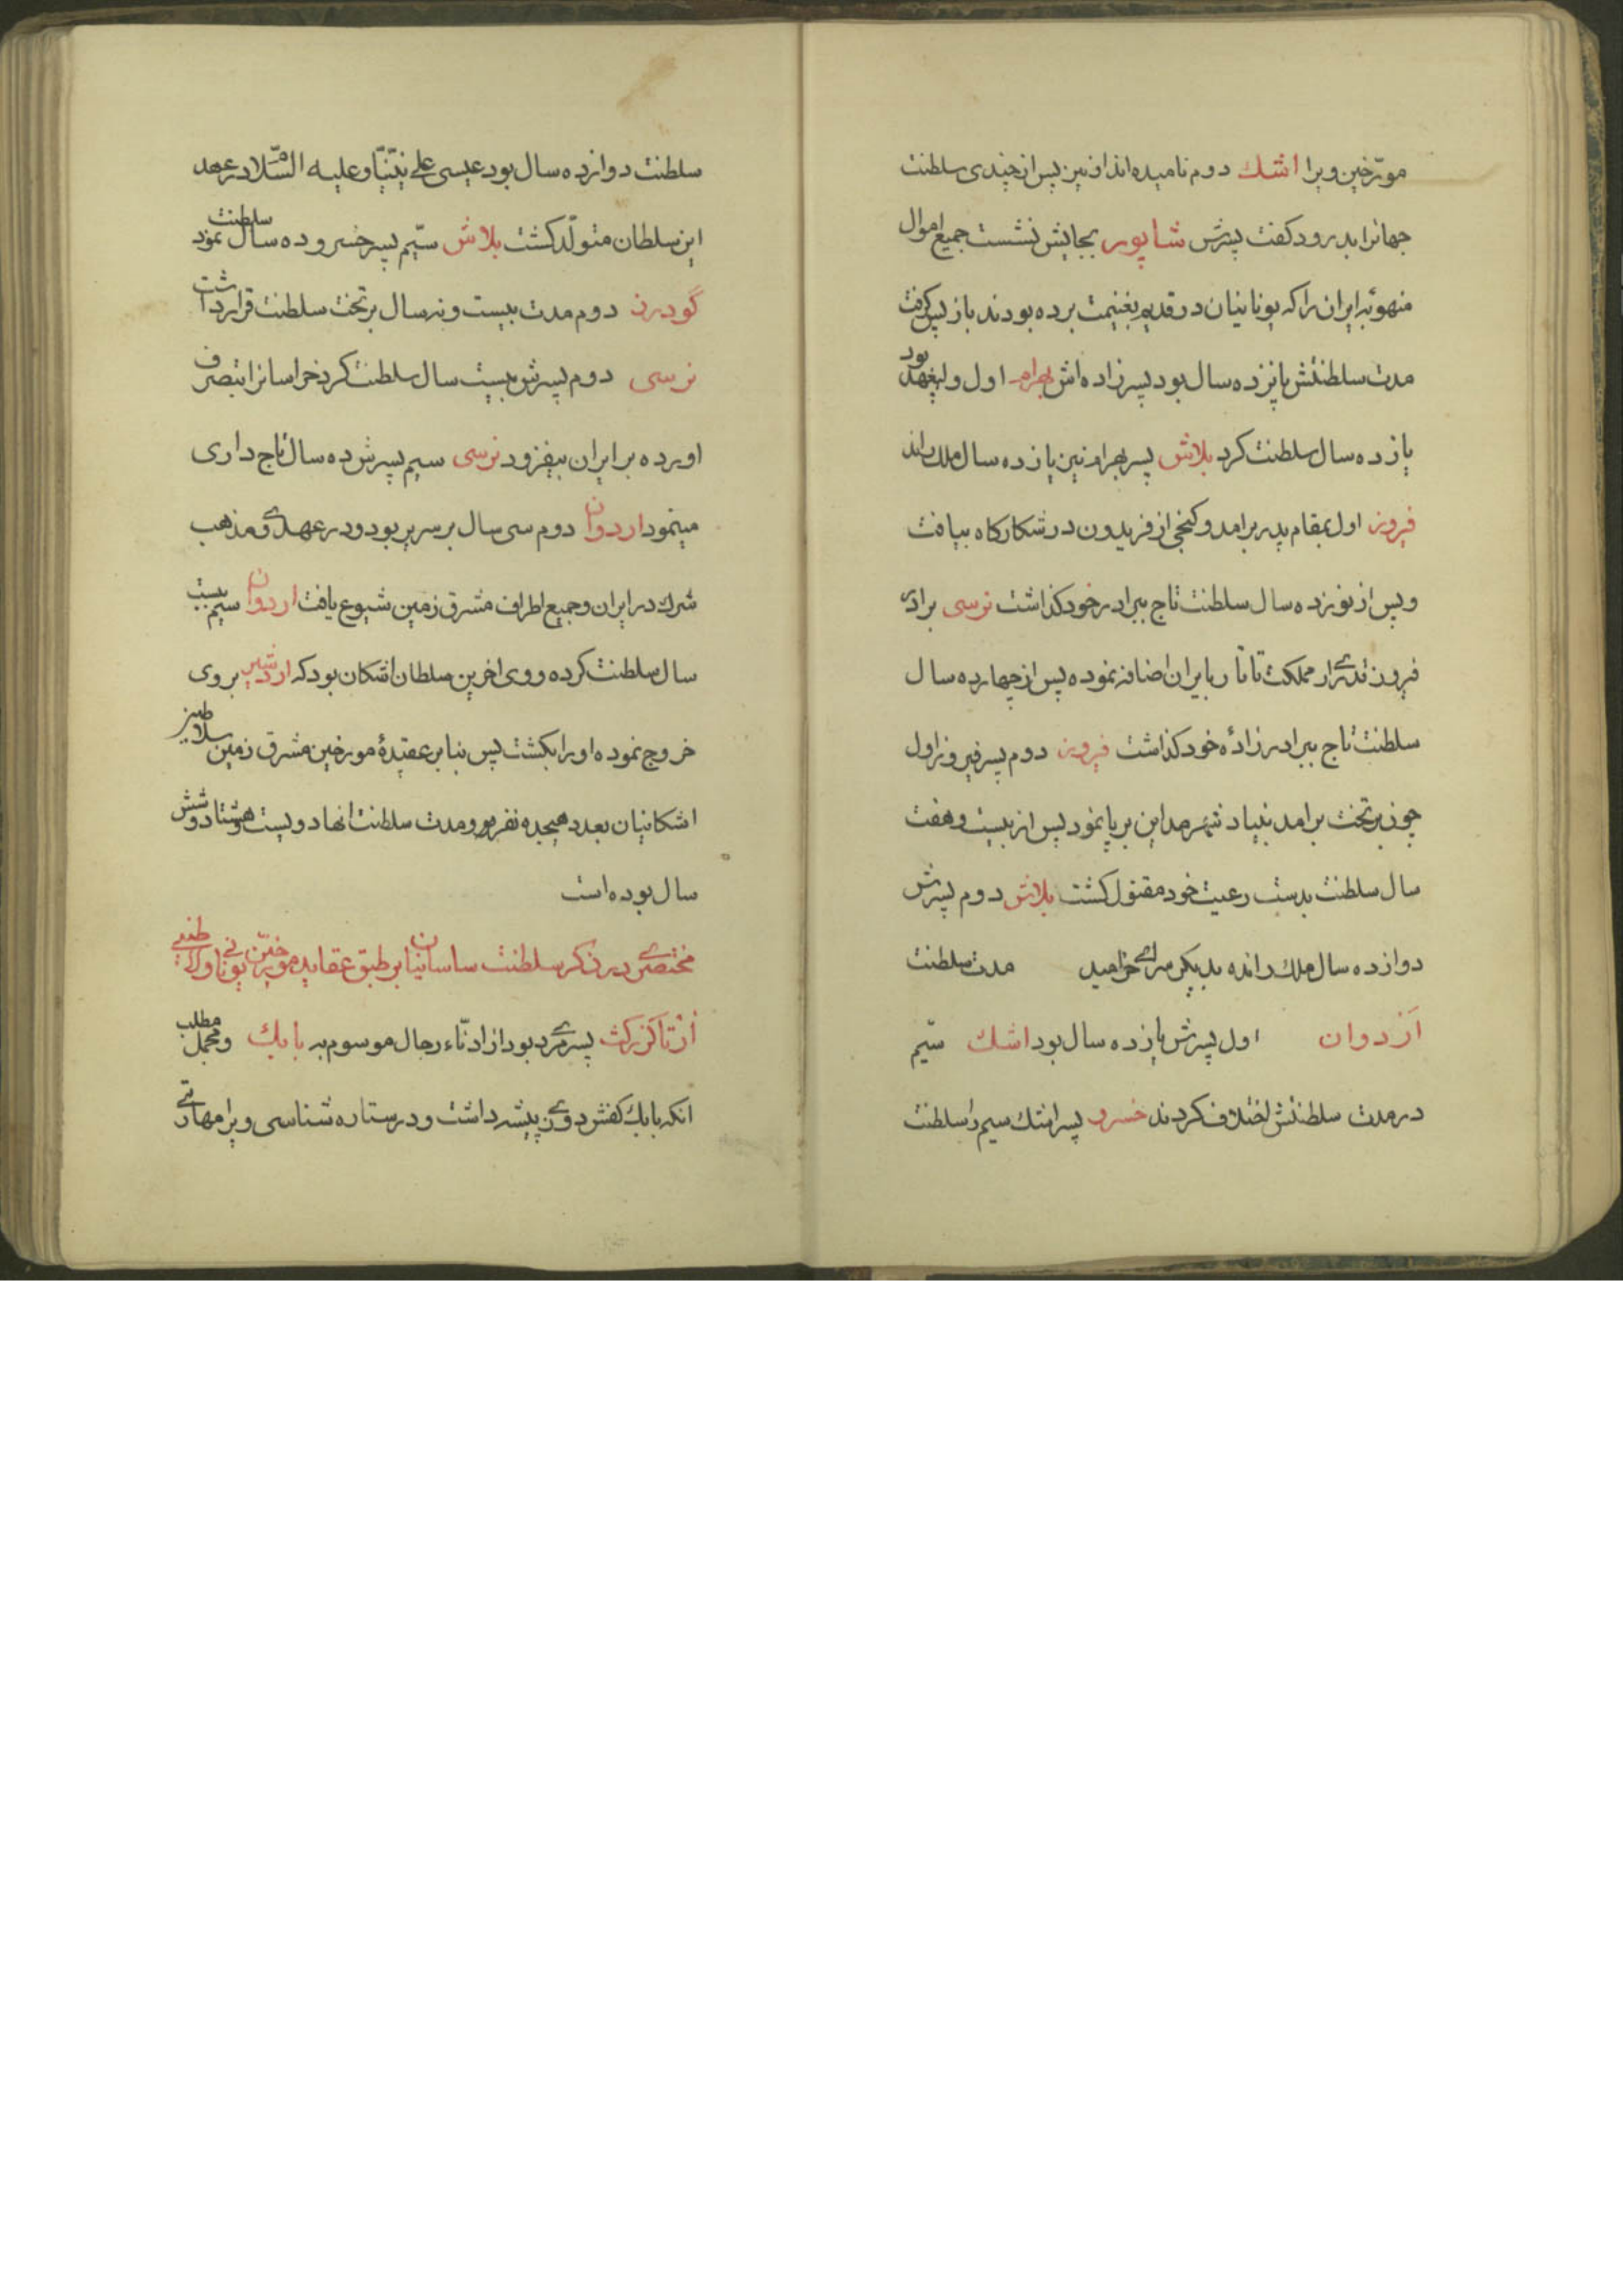 مورّخین ویرا اشك دوم نامیده‌اند او نیز پس از چندی سلطنت
جهانرا بدرود كفت پسرش شاپور بجایش نشست جمیع اموال
منهوبهٔ ایران را كه یونانیان در قدیم بغنیمت برده بودند باز پس كرفت
مدت سلطنتش پانزده سال بود پسرزاده‌اش بهرام اول ولیعهد بود
یازده سال سلطنت كرد بلاش پسر بهرام نیز یازده سال ملك راند
فیروز اول بمقام پدر برامد و كنجی از فریدون در شكاركاه بیافت
و پس از نوزده سال سلطنت تاج ببرادر خود كذاشت نرسی برادر
فیروز مملكت تاتار بایران اضافه نموده پس از چهارده سال
سلطنت تاج ببرادر زادهٔ خود كذاشت فیروز دوم پسر فیروز اول
چون بر تخت برامد بنیاد شهر مداین بر پا نمود پس از بیست و هفت
سال سلطنت بدست رعیت خود مقتول كشت بلاش دوم پسرش
دوازده سال ملك رانده بدیكر سرای خرامید مدت سلطنت
اَرْدوان اول پسرش یازده سال بود اشك سیّم
در مدت سلطنتش اختلاف كردند خسرو پسر اشك سیم را سلطنت
سلطنت دوازده سال بود عیسی علی نبیّنا و علیه السّلام در عهد
این سلطان متولّد كشت بلاش سیّم پسر خسرو ده سال سلطنت نمود
گودرز دوم مدت بیست و نه سال بر تخت سلطنت قرار داشت
نرسی دوم پسرش بیست سال سلطنت كرد خراسانرا بتصرف
اورده بر ایران بیفزود نرسی سیم پسرش ده سال تاج داری
مینمود اردوان دوم سی سال بر سریر بود و در عهد وی مذهب
شرك در ایران و جمیع اطراف مشرق زمین شیوع یافت اردوان سیم بیست
سال سلطنت كرده و وی اخرین سلطان اشكان بود كه اردشیر بر وی
خروج نموده او را بكشت پس بنا بر عقیدهٔ مورخین مشرق زمین سلاطین
اشكانیان بعدد هیجده نفر بود و مدت سلطنت انها دویست و هشتاد و شش
سال بوده است
مختصری در ذكر سلطنت ساسانیان بر طبق عقاید مورّخین یونانی و لاطینی
اَرْتاكْزِركْث پسر مردی بود از ادنّاء رجال موسوم به بابك و مجمل مطلب
انكه بابك كفش دوزی پیشه داشت و در ستاره شناسی ویرا مهارتی